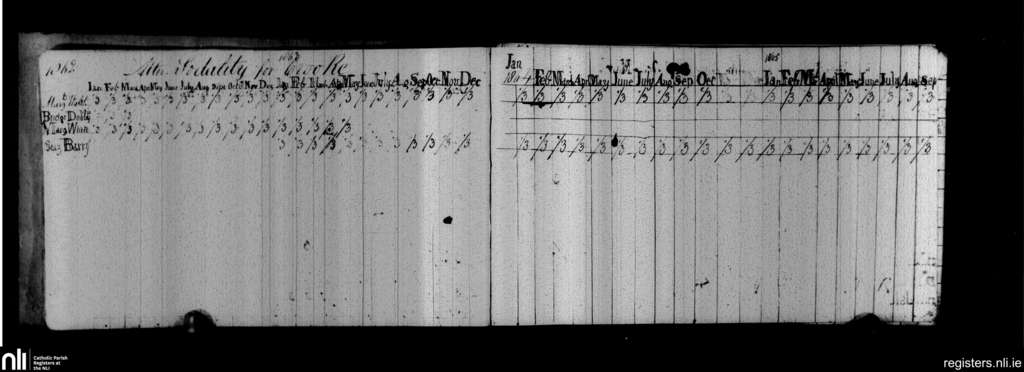 1862. Altar Sodality for 1863
Jan Feb Mar Apr May June July Aug Sep Oct Nov Dec Jan Feb Mar Apr May June July Aug Sep Oct Nov Dec
Mary /3 /3 /3 /3 /3 /3 /3 /3 /3 /3 /3 /3 /3 /3 /3 /3 /3 /3 /3 /3 /3 /3 /3 /3
Bridge /3 /3 /3
Mary White /3 /3 /3 /3 /3 /3 /3 /3 /3 /3 /3 /3 /3 /3 /3 /3
Barry /3 /3 /3 /3 /3 /3 /3 /3 /3 /3 /3 /3
Jan 1865
1864 Feb March Apr May June July Aug Sep Oct Jan Feb Mar April May June July Aug Sep
/3 /3 /3 /3 /3 /3 /3 /3 /3 /3 /3 /3 /3 /3 /3 /3 /3 /3 /3 /3 /3
/3 /3 /3 /3 /3 /3 /3 /3 /3 /3 /3 /3 /3 /3 /3 /3 /3 /3 /3 /3 /3
nli Catholic Parish
Registers at
the NLI
registers.nli.ie